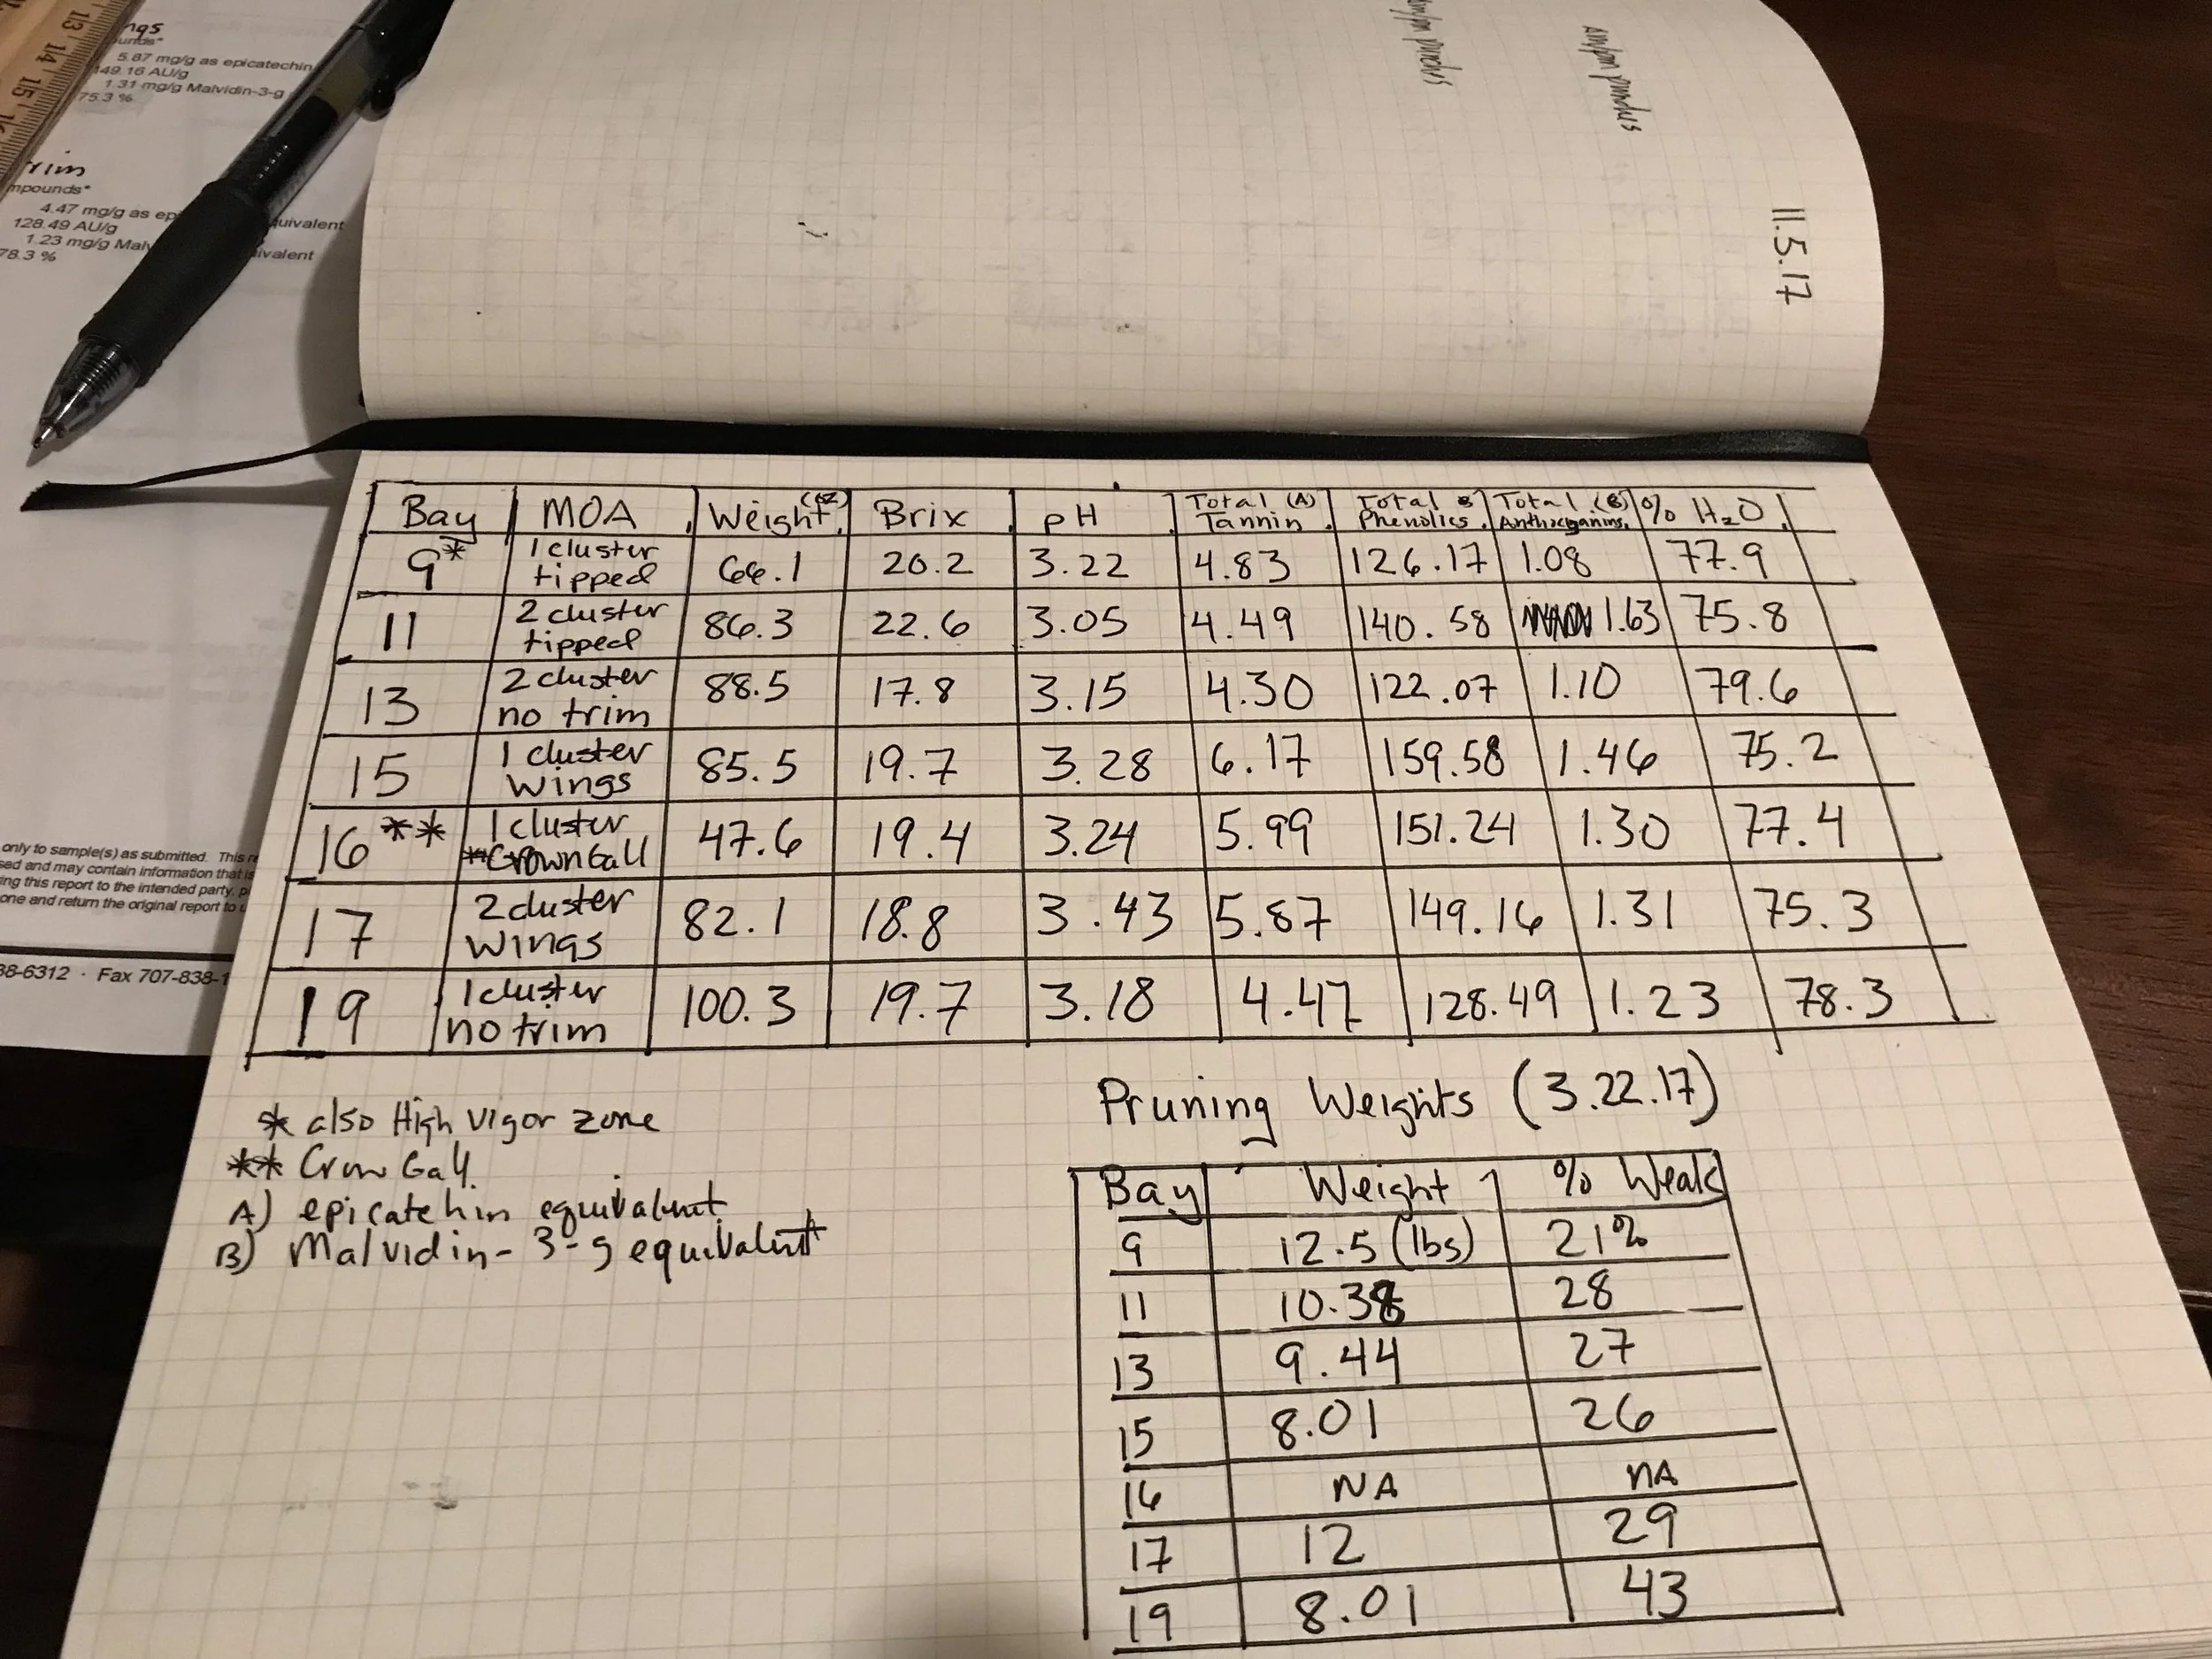 13 14 15
ngs
unds"
5.87 mg/g as epicatechin
149.16 AU/g
1.31 mg/g Malvidin-3-g
75.3 %
rim
mpounds"
4.47 mg/g as ep uivalent
128.49 AU/g
1.23 mg/g Malv ivalent
78.3 %
only to sample(s) as submitted. This re
sed and may contain information that is
ing this report to the intended party, p
one and return the original report to u
38-6312 · Fax 707-838-1
11.5.17
Bay MOA Weight Brix pH Total (A) Tannin Total Phenolics Total (B) Anthocyanins % H2O
9* 1 cluster tipped 66.1 20.2 3.22 4.83 126.17 1.08 77.9
11 2 cluster tipped 86.3 22.6 3.05 4.49 140.58 1.63 75.8
13 2 cluster no trim 88.5 17.8 3.15 4.30 122.07 1.10 79.6
15 1 cluster wings 85.5 19.7 3.28 6.17 159.58 1.46 75.2
16** 1 cluster *Crown Gall 47.6 19.4 3.24 5.99 151.24 1.30 77.4
17 2 cluster wings 82.1 18.8 3.43 5.87 149.16 1.31 75.3
19 1 cluster no trim 100.3 19.7 3.18 4.47 128.49 1.23 78.3
* also High vigor zone
** Crow Gall
A) epicatehin equivalent
B) Malvidin-3-g equivalent
Pruning Weights (3.22.17)
Bay Weight % Weak
9 12.5 (lbs) 21%
11 10.38 28
13 9.44 27
15 8.01 26
16 NA NA
17 12 29
19 8.01 43